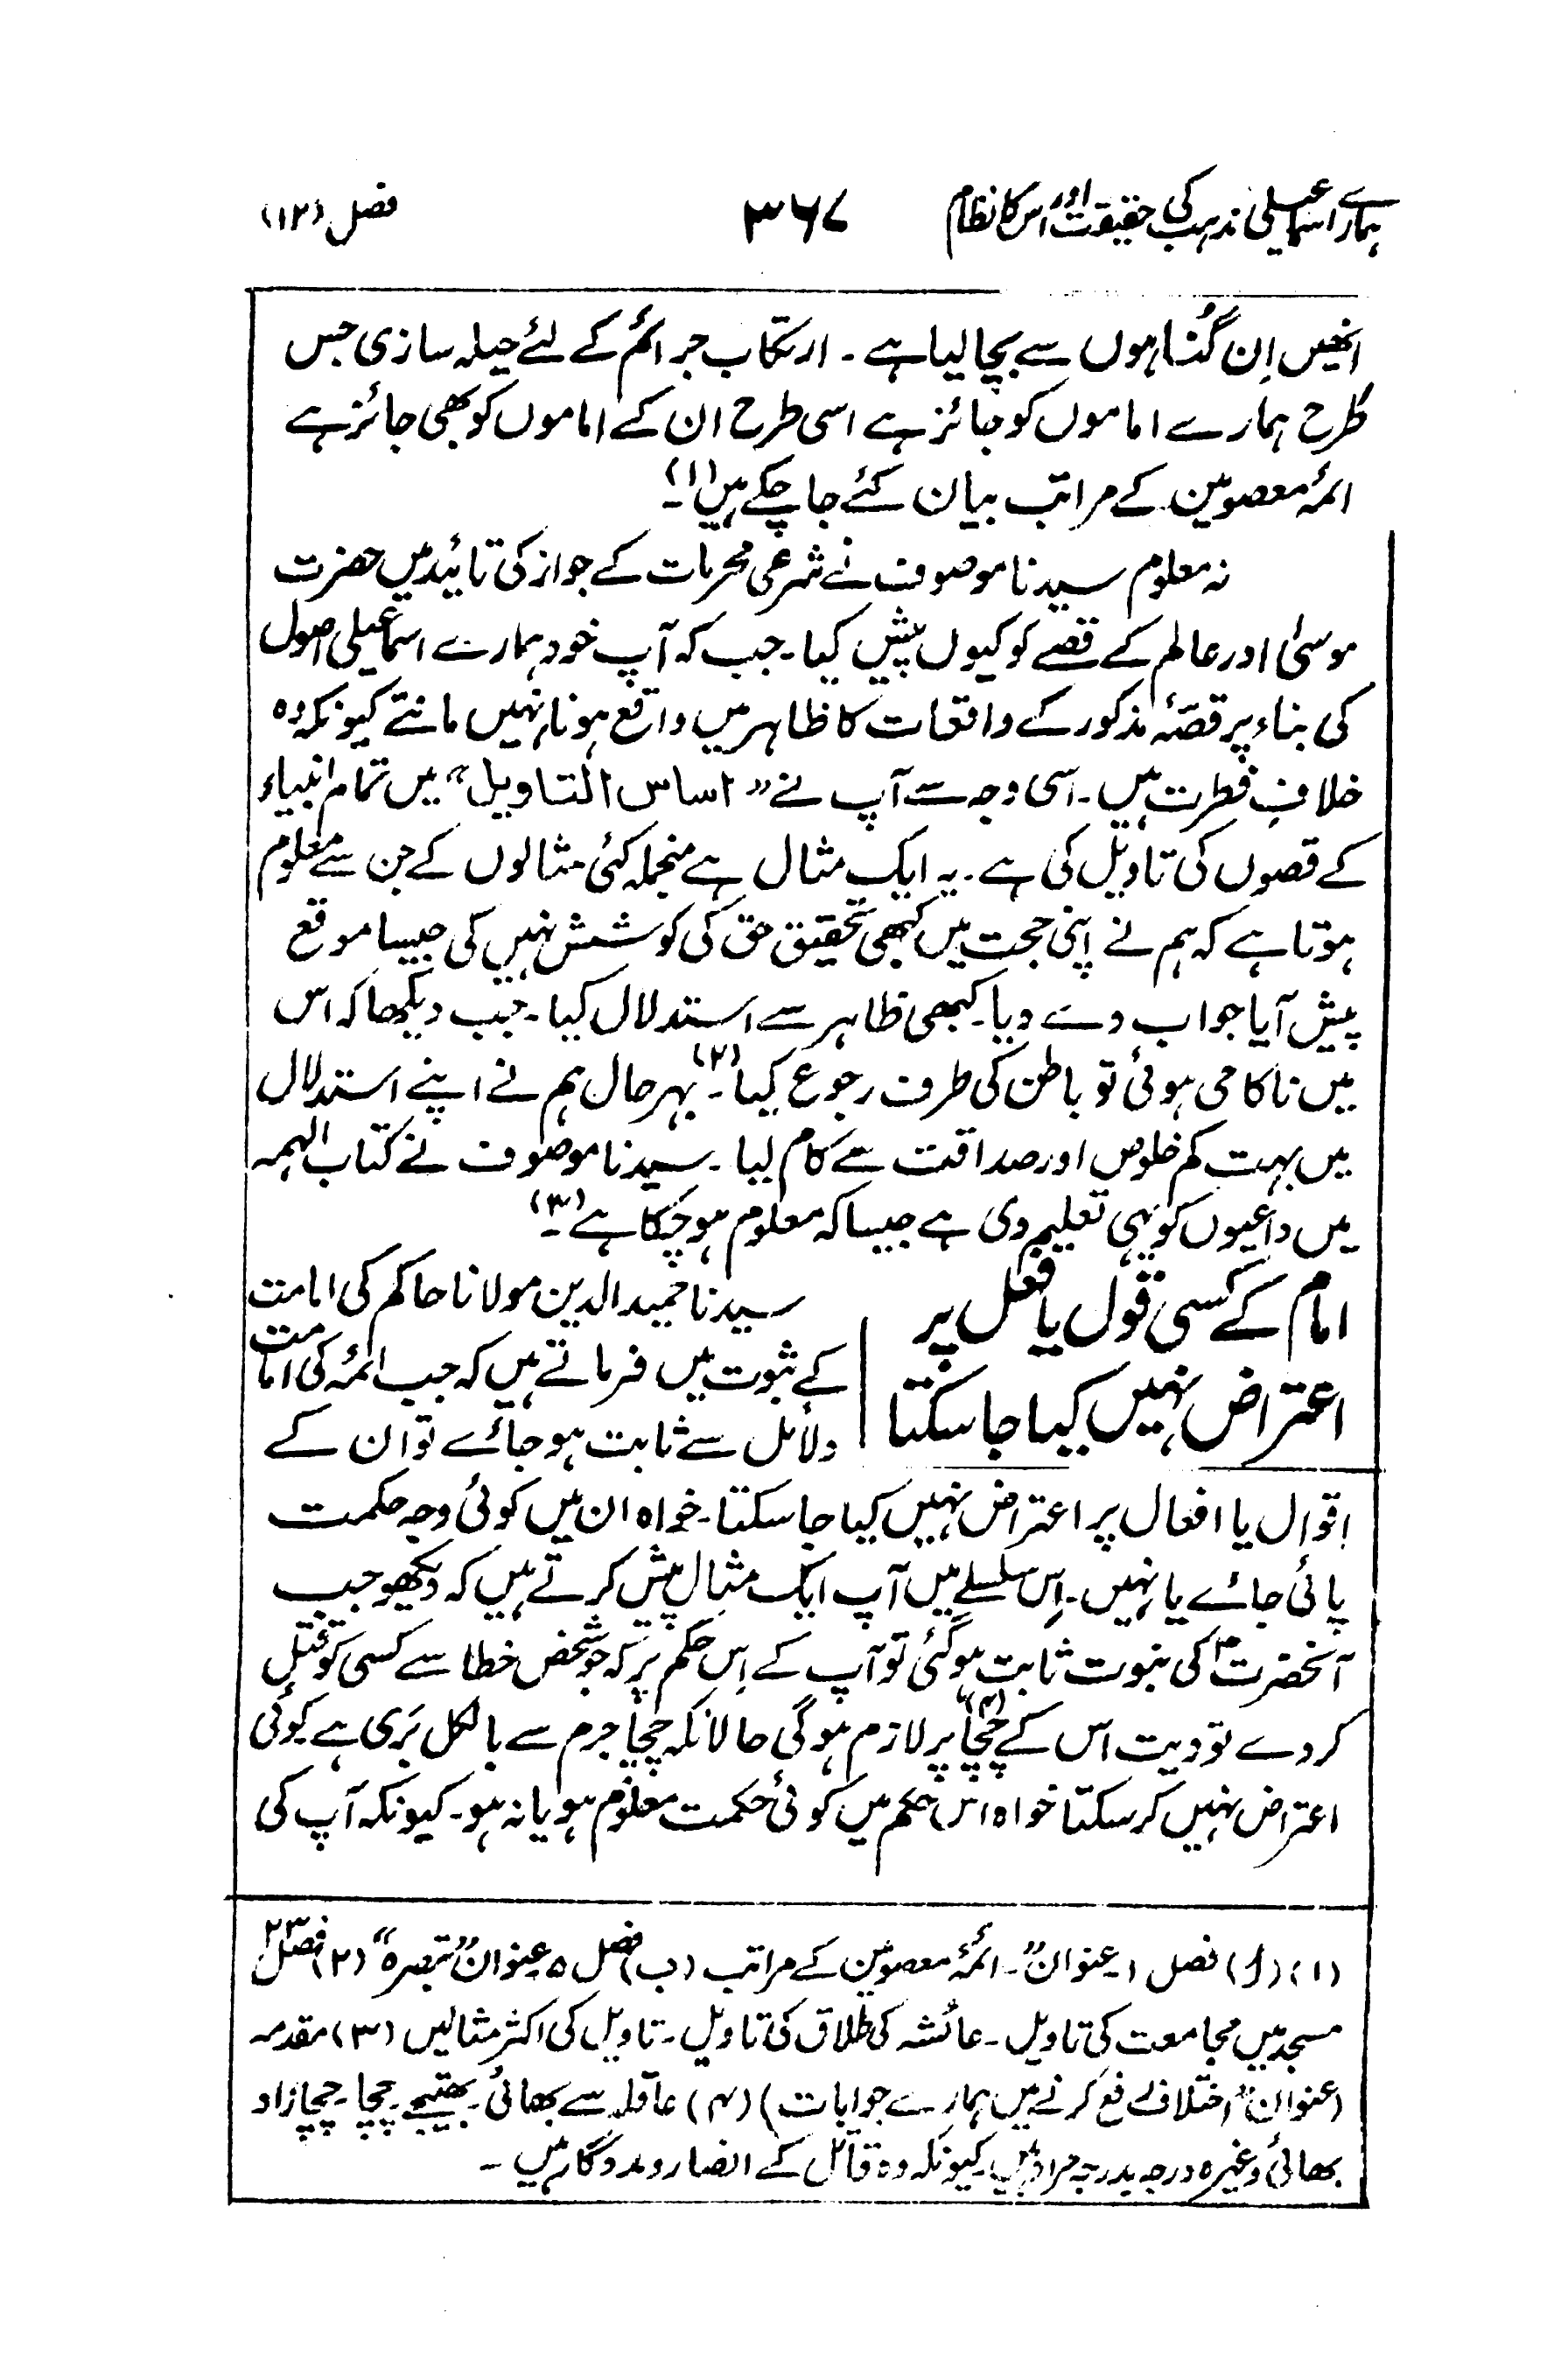 ہمارے اسماعیلی مذہب کی حقیقت اور اس کا نظام ۳۶۷ فصل (۱۲)
انھیں اِن گُناہوں سے بچا لیا ہے ۔ ارتکاب جرائم کے لئے حیلہ سازی جس
طرح ہمارے اماموں کو جائز ہے اسی طرح ان کے اماموں کو بھی جائز ہے
ائمۂ معصومین کے مراتب بیان کئے جا چکے ہیں (۱)۔
نہ معلوم سیدنا موصوف نے شرعی محرمات کے جواز کی تائید میں حضرت
موسیٰ اور عالم کے قصے کو کیوں پیش کیا۔ جب کہ آپ خود ہمارے اسماعیلی اصول
کی بناء پر قصّۂ مذکور کے واقعات کا ظاہر میں واقع ہونا نہیں مانتے کیونکہ وہ
خلافِ فطرت ہیں۔ اسی وجہ سے آپ نے “اساس التاویل” میں تمام انبیاء
کے قصوں کی تاویل کی ہے۔ یہ ایک مثال ہے منجملہ کئی مثالوں کے جن سے معلوم
ہوتا ہے کہ ہم نے اپنی حجت میں کبھی تحقیق حق کی کوشش نہیں کی جیسا موقع
پیش آیا جواب دے دیا۔ کبھی ظاہر سے استدلال کیا۔ جب دیکھا کہ اس
میں ناکامی ہوئی تو باطن کی طرف رجوع کیا (۲)۔ بہرحال ہم نے اپنے استدلال
میں بہت کم خلوص اور صداقت سے کام لیا ۔ سیدنا موصوف نے کتاب الہمہ
میں داعیوں کو یہی تعلیم دی ہے جیسا کہ معلوم ہو چکا ہے (۳)۔
امام کے کسی قول یا فعل پر
اعتراض نہیں کیا جا سکتا
سیدنا حمید الدین مولانا حاکم کی امامت
کے ثبوت میں فرماتے ہیں کہ جب ائمہ کی امامت
دلائل سے ثابت ہو جائے تو ان کے
اقوال یا افعال پر اعتراض نہیں کیا جا سکتا۔ خواہ ان میں کوئی وجہ حکمت
پائی جائے یا نہیں۔ اِس سلسلے میں آپ ایک مثال پیش کرتے ہیں کہ دیکھو جب
آنحضرتؐ کی نبوت ثابت ہو گئی تو آپ کے اِس حکم پر کہ جو شخص خطا سے کسی کو قتل
کر دے تو دیت اس کے چچا (۴) پر لازم ہو گی حالانکہ چچا جرم سے بالکل بَری ہے کوئی
اعتراض نہیں کر سکتا خواہ اس حکم میں کوئی حکمت معلوم ہو یا نہ ہو۔ کیونکہ آپ کی
(۱) (ا) فصل ۱ ۔ عنوان “ائمۂ معصومین کے مراتب (ب) فصل ۵ عنوان “تبصرہ” (۲) فصل ۲۳
مسجد میں مجامعت کی تاویل ۔ عائشہ کی طلاق کی تاویل ۔ تاویل کی اکثر مثالیں (۳) مقدمہ
(عنوان “اختلاف رفع کرنے میں ہمارے جوابات) (۴) عاقلہ سے بھائی ۔ بھتیجے ۔ چچا ۔ چچا زاد
بھائی وغیرہ درجہ بدرجہ مراد ہیں کیونکہ وہ قاتل کے انصار و مددگار ہیں ۔